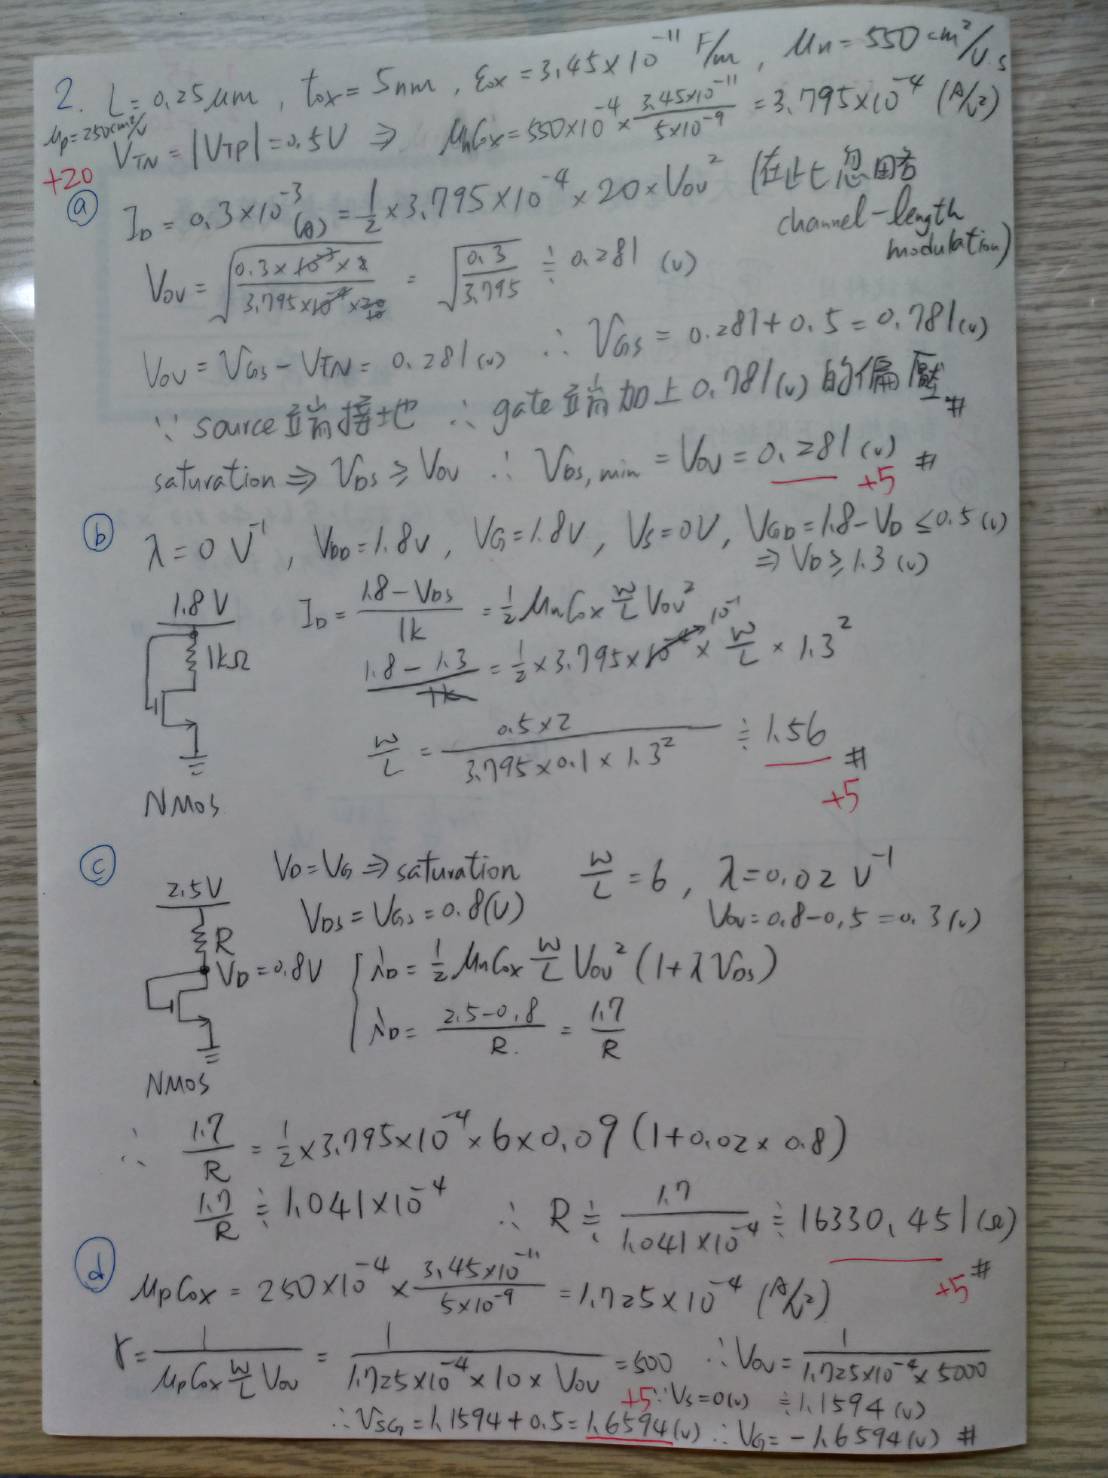 2. L = 0.25 μm , tox = 5nm , εox = 3.45×10⁻¹¹ F/m , μn = 550 cm²/v.s
μp=250cm²/v
VTN = |VTP| = 0.5V ⇒ μnCox = 550×10⁻⁴ × 3.45×10⁻¹¹/5×10⁻⁹ = 3.795×10⁻⁴ (A/v²)
+20
ⓐ ID = 0.3×10⁻³ (A) = 1/2 × 3.795×10⁻⁴ × 20 × Vov² (在此忽略
channel-length
modulation)
Vov = √(0.3×10⁻³×2/3.795×10⁻⁴×20) = √(0.3/3.795) ≒ 0.281 (v)
10
Vov = VGS - VTN = 0.281(v) ∴ VGS = 0.281+0.5 = 0.781(v)
∵ source端接地 ∴ gate端加上0.781(v)的偏壓 #
saturation ⇒ VDS ≥ Vov ∴ VDS,min = Vov = 0.281(v) #
+5
ⓑ λ = 0 V⁻¹ , VDD = 1.8v , VG = 1.8V , VS = 0V , VGD = 1.8-VD ≤ 0.5(v)
⇒ VD ≥ 1.3(v)
1.8V
1kΩ
NMOS
ID = 1.8-VDS/1k = 1/2 μnCox W/L Vov²
1.8-1.3/1k = 1/2 × 3.795×10⁻⁴ 10⁻¹ × W/L × 1.3²
W/L = 0.5×2/3.795×0.1×1.3² ≒ 1.56 #
+5
ⓒ VD=VG ⇒ saturation W/L = 6 , λ = 0.02 V⁻¹
VDS = VGS = 0.8(V) Vov = 0.8-0.5 = 0.3(v)
2.5V
R
VD = 0.8V
NMOS
iD = 1/2 μnCox W/L Vov² (1+λVDS)
iD = 2.5-0.8/R = 1.7/R
∴ 1.7/R = 1/2 × 3.795×10⁻⁴ × 6 × 0.09 (1+0.02×0.8)
1.7/R ≒ 1.041×10⁻⁴ ∴ R ≒ 1.7/1.041×10⁻⁴ ≒ 16330.451(Ω) #
+5
ⓓ μpCox = 250×10⁻⁴ × 3.45×10⁻¹¹/5×10⁻⁹ = 1.725×10⁻⁴ (A/v²)
r = 1/μpCox W/L Vov = 1/1.725×10⁻⁴×10×Vov = 500 ∴ Vov = 1/1.725×10⁻⁴×5000
+5 ∵ VS=0(v) ≒ 1.1594(v)
∴ VSG = 1.1594+0.5 = 1.6594(v) ∴ VG = -1.6594(v) #